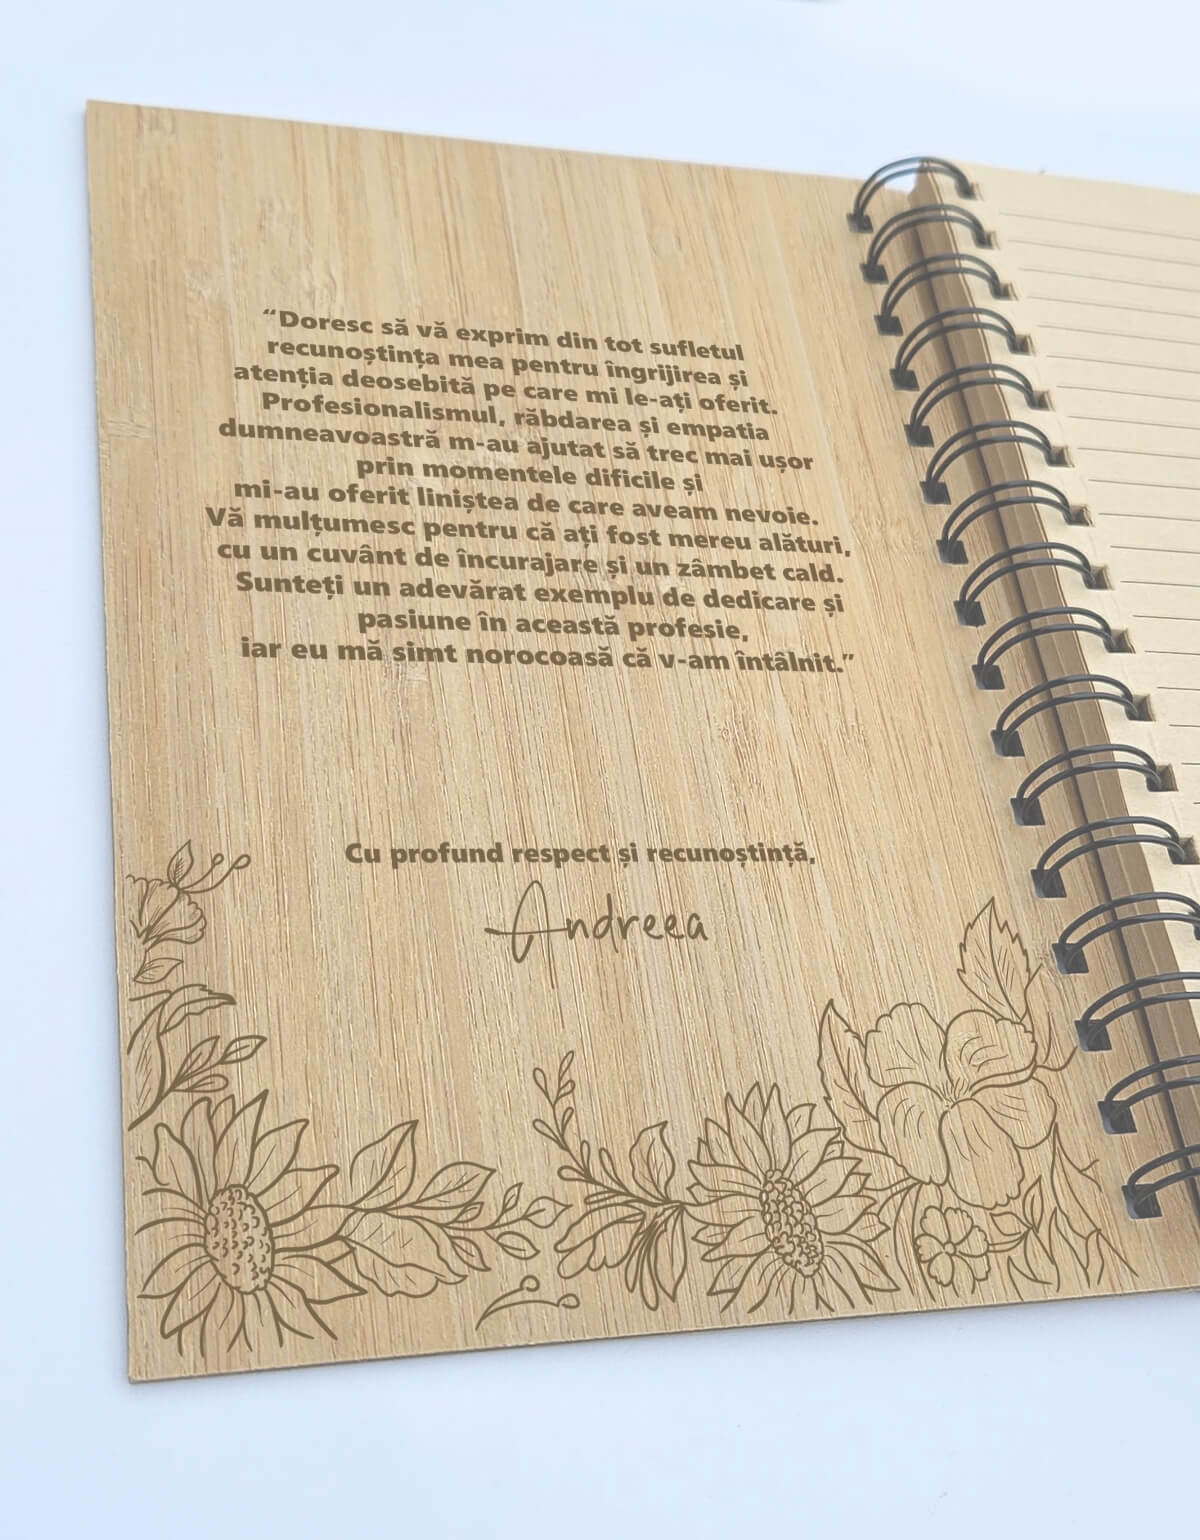 “Doresc să vă exprim din tot sufletul
recunoștința mea pentru îngrijirea și
atenția deosebită pe care mi le-ați oferit.
Profesionalismul, răbdarea și empatia
dumneavoastră m-au ajutat să trec mai ușor
prin momentele dificile și
mi-au oferit liniștea de care aveam nevoie.
Vă mulțumesc pentru că ați fost mereu alături,
cu un cuvânt de încurajare și un zâmbet cald.
Sunteți un adevărat exemplu de dedicare și
pasiune în această profesie,
iar eu mă simt norocoasă că v-am întâlnit.”
Cu profund respect și recunoștință,
Andreea